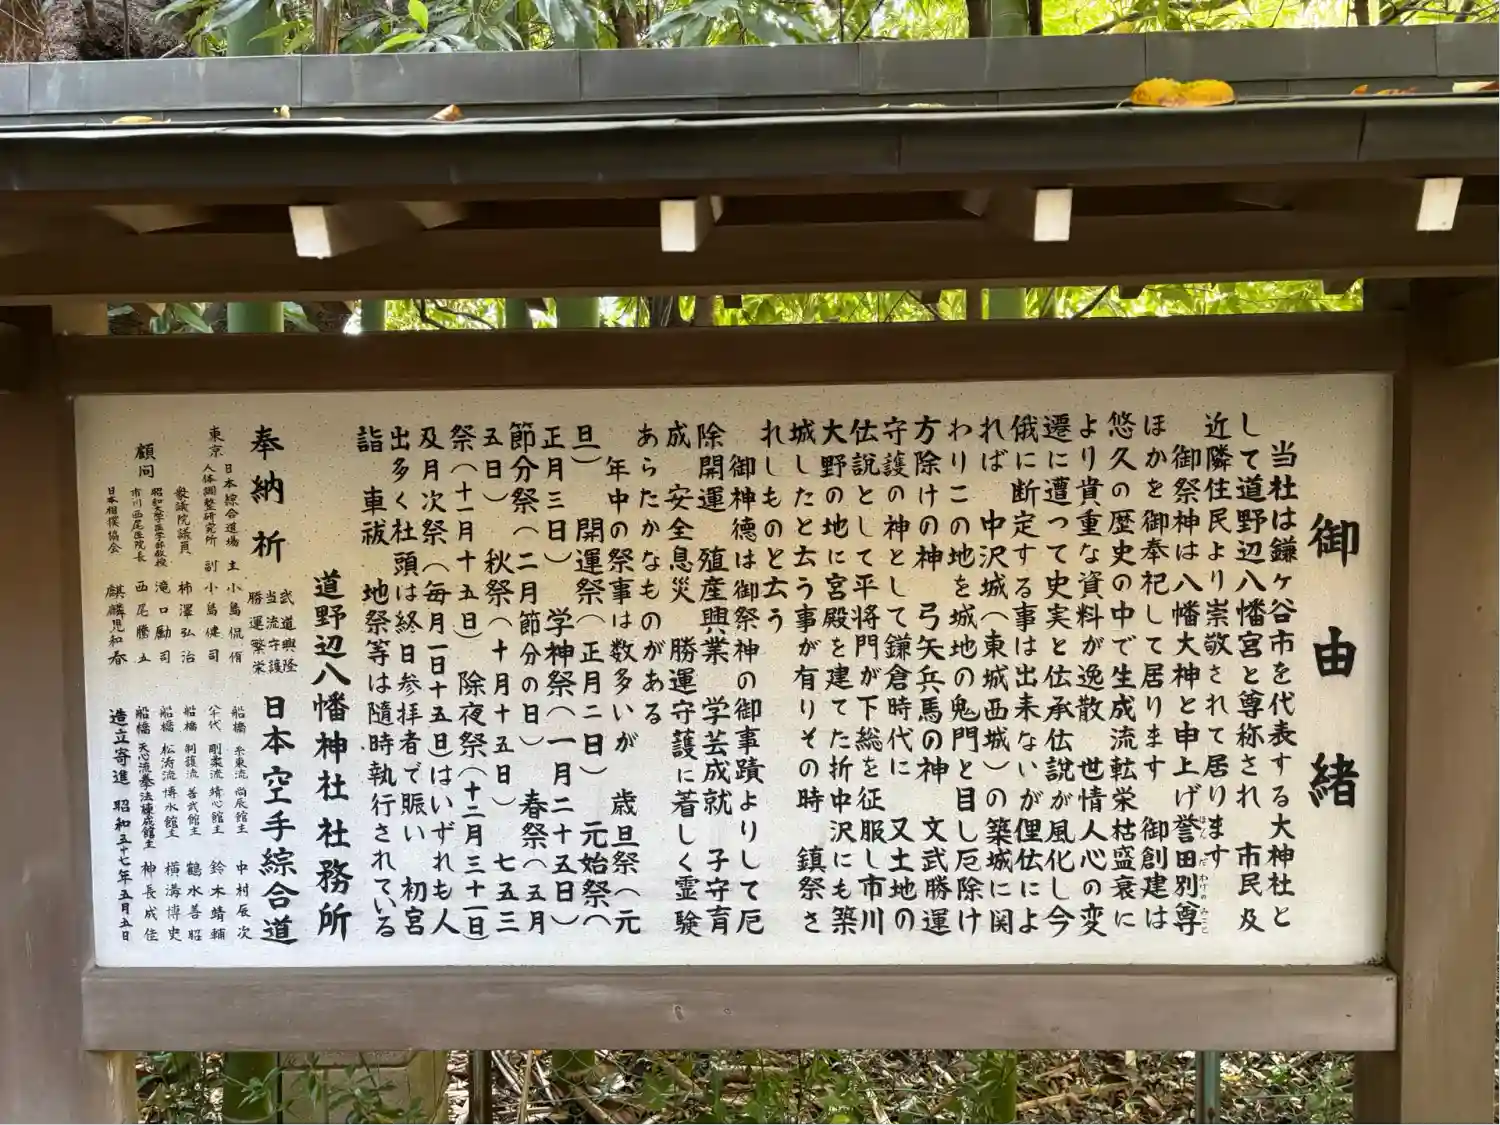 御由緒
当社は鎌ヶ谷市を代表する大神社と
して道野辺八幡宮と尊称され　市民及
近隣住民より崇敬されて居ります
御祭神は八幡大神と申上げ誉田別尊
ほんだわけのみこと
ほかを御奉祀して居ります　御創建は
悠久の歴史の中で生成流転栄枯盛衰に
より貴重な資料が逸散　世情人心の変
遷に遭つて史実と伝承伝説が風化し今
俄に断定する事は出来ないが俚伝によ
れば　中沢城（東城西城）の築城に関
わりこの地を城地の鬼門と目し厄除け
方除けの神　弓矢兵馬の神　文武勝運
守護の神として鎌倉時代に　又土地の
伝説として平将門が下総を征服し市川
大野の地に宮殿を建てた折中沢にも築
城したと云う事が有りその時　鎮祭さ
れしものと云う
御神徳は御祭神の御事蹟よりして厄
除開運　殖産興業　学芸成就　子守育
成　安全息災　勝運守護に著しく霊験
あらたかなものがある
年中の祭事は数多いが　歳旦祭（元
旦）　開運祭（正月二日）　元始祭（
正月三日）　学神祭（一月二十五日）
節分祭（二月節分の日）　春祭（五月
五日）　秋祭（十月十五日）　七五三
祭（十一月十五日）　除夜祭（十二月三十一日）
及月次祭（毎月一日十五日）はいずれも人
出多く社頭は終日参拝者で賑い　初宮
詣　車祓　地祭等は隨時執行されている
道野辺八幡神社社務所
奉納　祈　武道興隆　当流守護　勝運繁栄　日本空手綜合道
日本綜合道場　主　小島侃脩　船橋　糸東流　尚辰館主　中村辰次
東京　人体調整研究所　副　小島健司　八千代　剛柔流　靖心館主　鈴木靖輔
衆議院議員　柿澤弘治　船橋　制護流　善武館主　鶴水善昭
顧問　昭和大学医学部教授　滝口勵司　船橋　松濤流　博水館主　横溝博史
市川西尾医院長　西尾勝五　船橋　天心流拳法練成館主　神長成佳
日本相撲協会　麒麟児和春　造立寄進　昭和五十七年五月五日